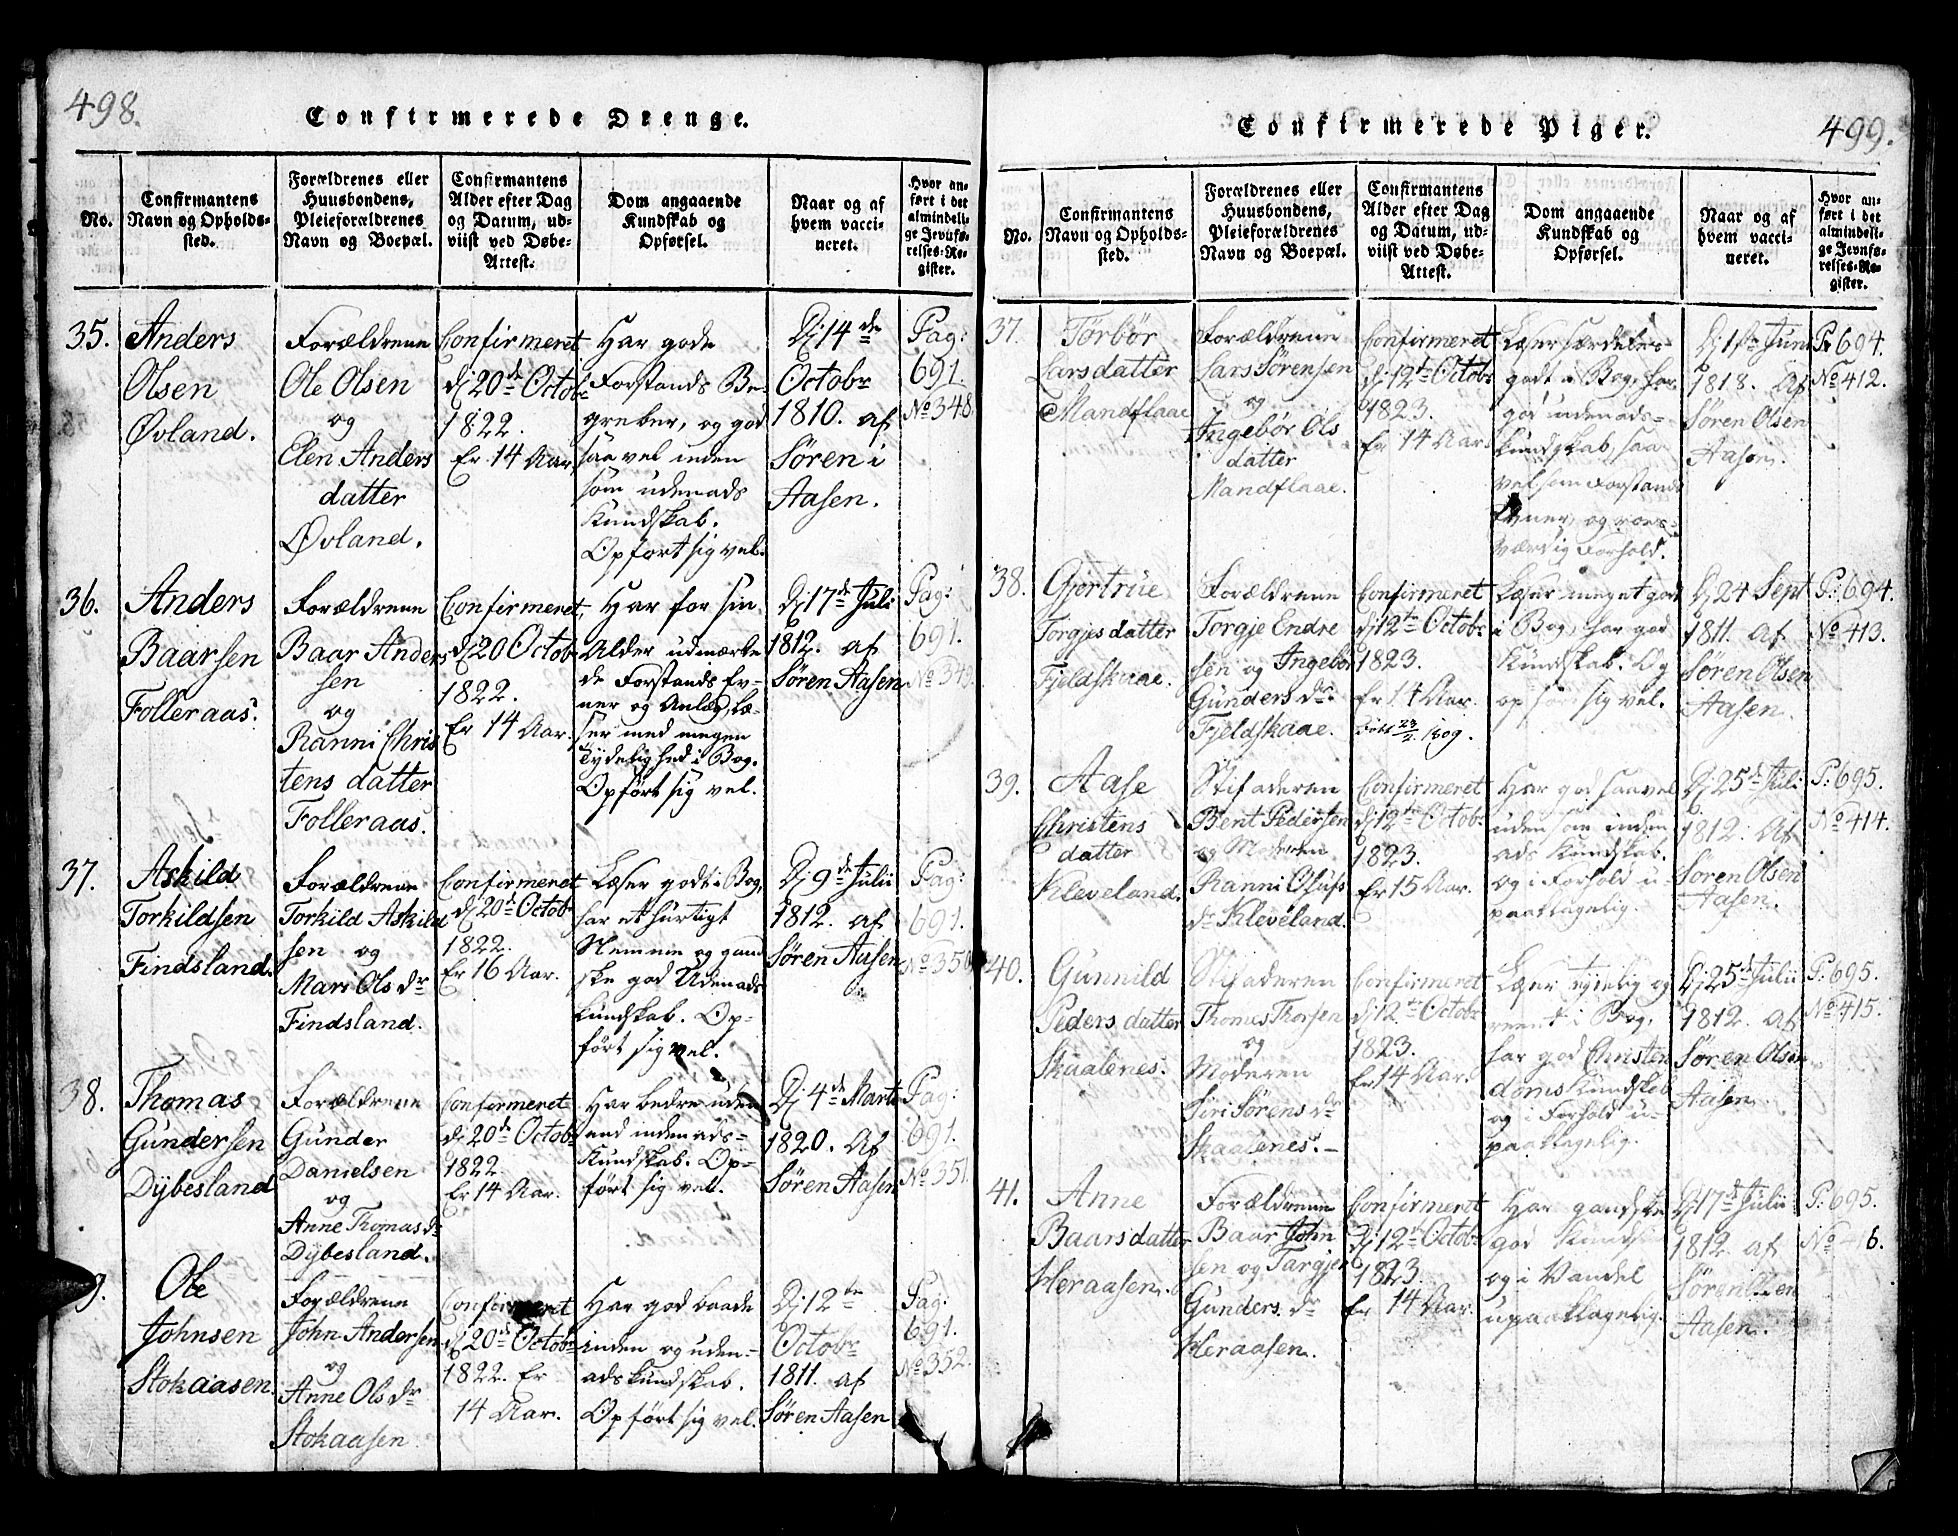 498.
Confirmerede Drenge.
No.
Confirmantens
Navn og Opholds-
sted.
Forældrenes eller
Huusbondens,
Pleieforældrenes
Navn og Boepæl.
Confirmantens
Alder efter Dag
og Datum, ud-
viist ved Døbe-
Attest.
Dom angaaende
Kundskab og
Opførsel.
Naar og af
hvem vacci-
neret.
Hvor an-
ført i det
almindeli-
ge Jevnfø-
relses-Re-
gister.
35.
Anders
Olsen
Øvland.
Forældrene
Ole Olsen
og
Elen Anders
datter
Øvland.
Confirmeret
Dj 20de Octobr
1822.
Er 14 Aar.
Har gode
Forstands Be-
greber, og god
saavel inden
som udenads
Kundskab.
Opført sig vel.
Dj 14de
Octobr
1810. af
Søren i
Aasen.
Pag:
691.
No 348.
36.
Anders
Baarsen
Folleraas.
Forældrene
Baar Anders
sen
og
Ranni Chris
tens datter
Folleraas.
Confirmeret
Dj 20 Octobr
1822.
Er 14 Aar.
Har for sin
Alder udmærke
de Forstands Ev-
ner og Anlæg, læ-
ser med megen
Tydelighed i Bog.
Opført sig vel.
Dj 17de Juli
1812. af
Søren Aasen
Pag:
691.
No 349.
37.
Askild
Torkildsen
Findsland.
Forældrene
Torkild Askild
sen og
Mari Ols dr
Findsland.
Confirmeret
Dj 20de Octobr
1822.
Er 16 Aar.
Læser godt i Bog,
har et hurtigt
Nemme og gand
ske god Udenads
kundskab. Op-
ført sig vel.
Dj 9de Julii
1812. af
Søren Aasen
Pag:
691.
No 350
38.
Thomas
Gundersen
Dÿbesland
Forældrene
Gunder
Danielsen
og
Anne Thomas dr
Dÿbesland.
Confirmeret
Dj 20de Octobr
1822
Er 14 Aar.
Har bedre uden
end indenads-
Kundskab. Op-
ført sig vel.
Dj 4de Marti
1820. Af
Søren Aasen
Pag:
691.
No 351.
9.
Ole
Johnsen
Stokaasen.
Forældrene
John Andersen
og
Anne Ols dr
Stokaasen
Confirmeret
Dj 20de Octobr
1822. Er
14 Aar.
Har god baade
inden og uden-
ads kundskab.
Opført sig vel.
Dj 12te
Octobr
1811. af
Søren Aasen
Pag:
691.
No 352.
Confirmerede Piger.
499.
No.
Confirmantens
Navn og Opholds-
sted.
Forældrenes eller
Huusbondens,
Pleieforældrenes
Navn og Boepæl.
Confirmantens
Alder efter Dag
og Datum, ud-
viist ved Døbe-
Attest.
Dom angaaende
Kundskab og
Opførsel.
Naar og af
hvem vacci-
neret.
Hvor an-
ført i det
almindeli-
ge Jevnfø-
relses-Re-
gister.
37.
Tørbør
Larsdatter
Mandflaae
Forældrene
Lars Sørensen
og
Ingebør Ols
datter
Mandflaae.
Confirmeret
Dj 12te Octobr
1823.
Er 14 Aar.
Læser særdeles
godt i Bog, har
god udenads-
kundskab, saa
vel som Forstands
Evner, og roes-
værdig Forhold.
Dj 1ste Juni
1818. Af
Søren Olsen
Aasen.
P: 694.
No 412.
38.
Gjertrüe
Torgjes datter
Fjeldskaae.
Forældrene
Torgje Endre
sen og Ingebør
Gunders dr
Fjeldskaae.
Confirmeret
Dj 12te Octobr
1823.
Er 14 Aar.
Døbt 23/2 1809.
Læser meget godt
i Bog, har god
Kundskab. Og
opført sig vel.
Dj 24 Sept
1811. af
Søren Olsen
Aasen.
P: 694.
No 413.
39.
Aase
Christens
datter
Kleveland.
Stifaderen
Bent Pedersen
og Moderen
Ranni Olufs
dr Kleveland.
Confirmeret
Dj 12te Octobr
1823.
Er 15 Aar.
Har god saavel
uden som inden
ads Kundskab.
og i Forhold u-
paaklagelig.
Dj 25de Juli
1812. Af
Søren Olsen
Aasen.
P: 695.
No 414.
40.
Gunnild
Peders datter
Skaalenes.
Stifaderen
Thomas Thorsen
og
Moderen
Siri Sørens dr
Skaalenes.
Confirmeret
Dj 12te Octobr
1823.
Er 14 Aar.
Læser tydelig og
reent i Bog,
har god Christen
doms Kundskab
og i Forhold u-
paaklagelig.
Dj 25de Julii
1812. af
Søren Olsen
Aasen.
P: 695.
No 415.
41.
Anne
Baarsdatter
Heraasen.
Forældrene
Baar John
sen og Targjer
Gunders dr
Heraasen.
Confirmeret
Dj 12te Octobr
1823.
Er 14 Aar.
Har gandske
god Kundskab
og i Vandel
upaaklagelig.
Dj 17de Julii
1812. af
Søren Olsen
Aasen.
P: 695.
No 416.